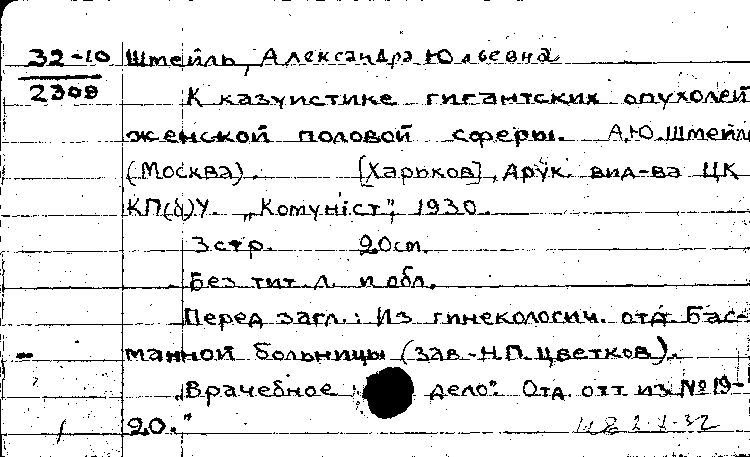 32-10 Штейль, Александра Юльевна
2308
К казуистике гигантских опухолей
женской половой сферы. А.Ю. Штейль
(Москва). [Харьков], Друк. вид-ва ЦК
КП(б)У. „Комуніст”, 1930.
3 стр. 20 cm.
Без тит. л. и обл.
Перед загл.: Из гинекологич. отд. Бас-
манной больницы (зав. Н.П. Цветков).
„Врачебное дело”. Отд. отт. из №19-
20.”